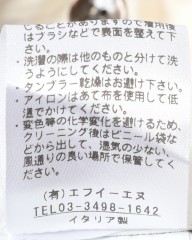 じることがありますので着用後
はブラシなどで裏面を整えて下
さい。
・洗濯の際は他のものと分けて洗
うようにしてください。
・タンブラー乾燥はお避け下さい。
・アイロンはあて布を使用して低
温でかけてください。
・変色等の化学変化を避けるため、
クリーニング後はビニール袋な
どから出して、湿気の少ない、
風通りの良い場所で保管してく
ださい。
(有)エフイーエヌ
TEL03-3498-1642
イタリア製